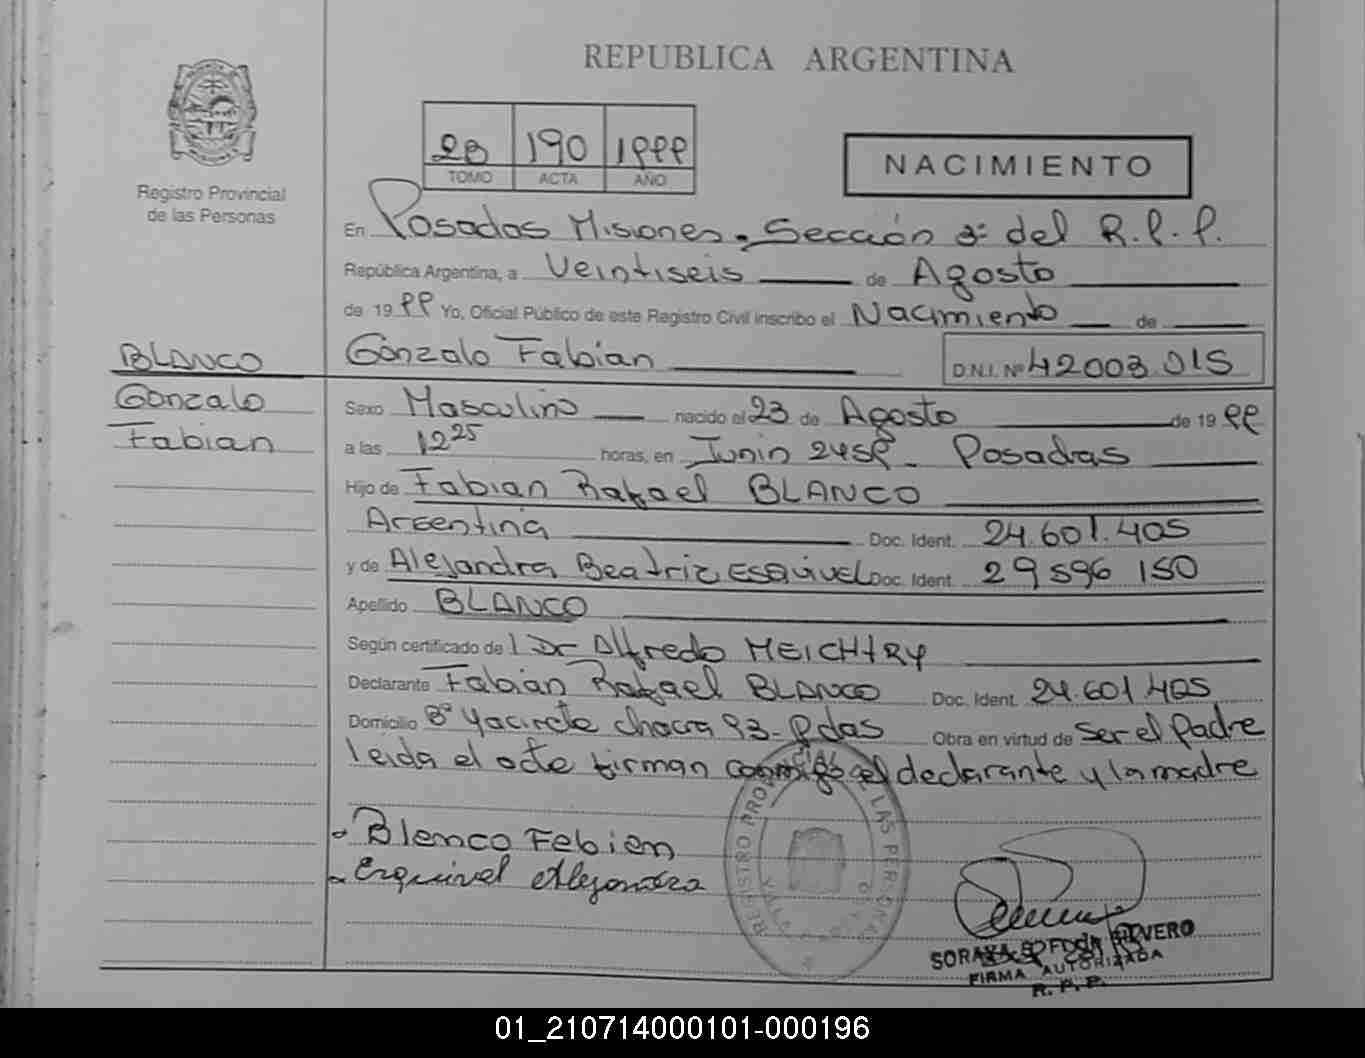 REPUBLICA ARGENTINA
Registro Provincial
de las Personas
2B 190 1999
TOMO ACTA AÑO
NACIMIENTO
En Posadas Misiones. Sección 3ª del R.P.P.
República Argentina, a Veintiseis de Agosto
de 1999 Yo, Oficial Público de este Registro Civil inscribo el Nacimiento de
BLANCO
Gonzalo
Fabian
Gonzalo Fabian D.N.I. Nº 42003.015
Sexo Masculino nacido el 23 de Agosto de 1999
a las 12 25 horas, en Junin 2458 - Posadas
Hijo de Fabian Rafael BLANCO
Argentina Doc. Ident. 24.601.405
y de Alejandra Beatriz ESQUIVEL Doc. Ident. 29 596 150
Apellido BLANCO
Según certificado de l Dr Alfredo MEICHTRY
Declarante Fabian Rafael BLANCO Doc. Ident. 24.601.405
Domicilio Bº Yacireta chacra 93 - Pdas Obra en virtud de ser el padre
leida el acta firman conmigo el declarante y la madre
Blanco Fabian
Esquivel Alejandra
REGISTRO PROVINCIAL DE LAS PERSONAS
FIRMA AUTORIZADA
R. P. P.
01_210714000101-000196